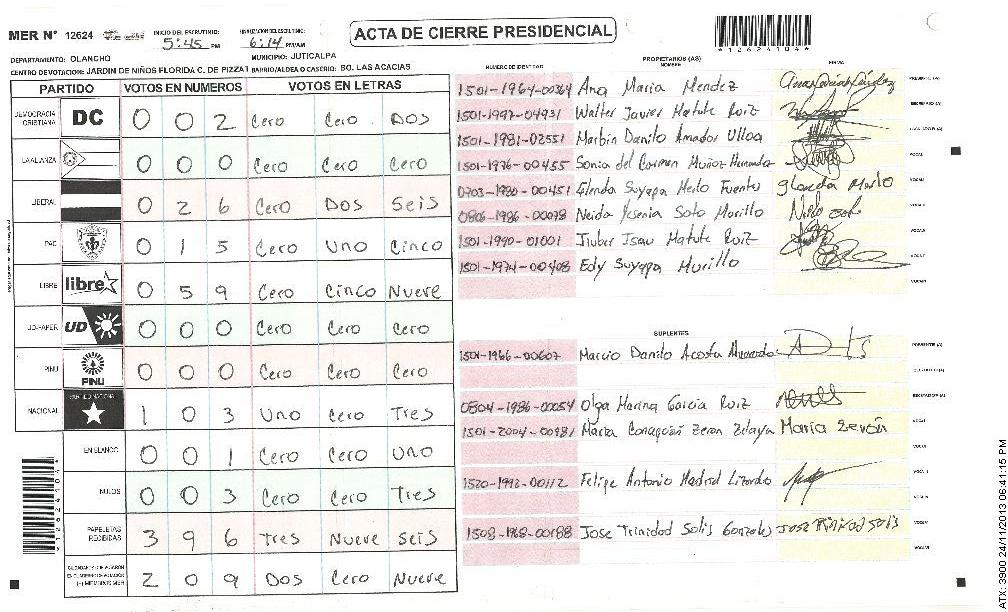 MER N° 12624
INICIO DEL ESCRUTINIO: 5:45 PM
FINALIZACION DEL ESCRUTINIO: 6:14 PM/AM
ACTA DE CIERRE PRESIDENCIAL
DEPARTAMENTO: OLANCHO
MUNICIPIO: JUTICALPA
CENTRO DE VOTACION: JARDIN DE NIÑOS FLORIDA C. DE PIZZAT BARRIO/ALDEA O CASERIO: BO. LAS ACACIAS
PARTIDO VOTOS EN NUMEROS VOTOS EN LETRAS
DEMOCRACIA CRISTIANA DC 0 0 2 Cero Cero Dos
LA ALIANZA 0 0 0 Cero Cero Cero
LIBERAL 0 2 6 Cero Dos Seis
PAC 0 1 5 Cero Uno Cinco
LIBRE libre 0 5 9 Cero Cinco Nueve
UD-FAPER UD 0 0 0 Cero Cero Cero
PINU PINU 0 0 0 Cero Cero Cero
NACIONAL 1 0 3 Uno Cero Tres
EN BLANCO 0 0 1 Cero Cero Uno
NULOS 0 0 3 Cero Cero Tres
PAPELETAS RECIBIDAS 3 9 6 Tres Nueve Seis
2 0 9 Dos Cero Nueve
NUMERO DE IDENTIDAD
PROPIETARIOS (AS)
NOMBRE
FIRMA
1501-1964-00364 Ana Maria Mendez
1501-1997-04931 Walter Javier Matute Ruiz
1501-1981-02551 Marbin Danilo Amador Ulloa
1501-1976-00455 Sonia del Carmen Muñoz Hernandez
0703-1980-00451 Glenda Suyapa Merlo Fuentes Glenda Merlo
0806-1986-00078 Neida Ysenia Soto Morillo
1501-1990-01001 Jiuber Isau Matute Ruiz
1501-1974-00408 Edy Suyapa Murillo
SUPLENTES
1501-1966-00607 Marcio Danilo Acosta
0804-1986-00054 Olga Marina Garcia Ruiz
1501-2004-00981 Maria Concepción Zeron Zelaya Maria Zerón
1520-1992-00112 Felipe Antonio Madrid Lizardo
1508-1968-00188 Jose Trinidad Solis Gonzales Jose Trinidad Solis
ATX: 3900 24/11/2013 06:41:15 PM